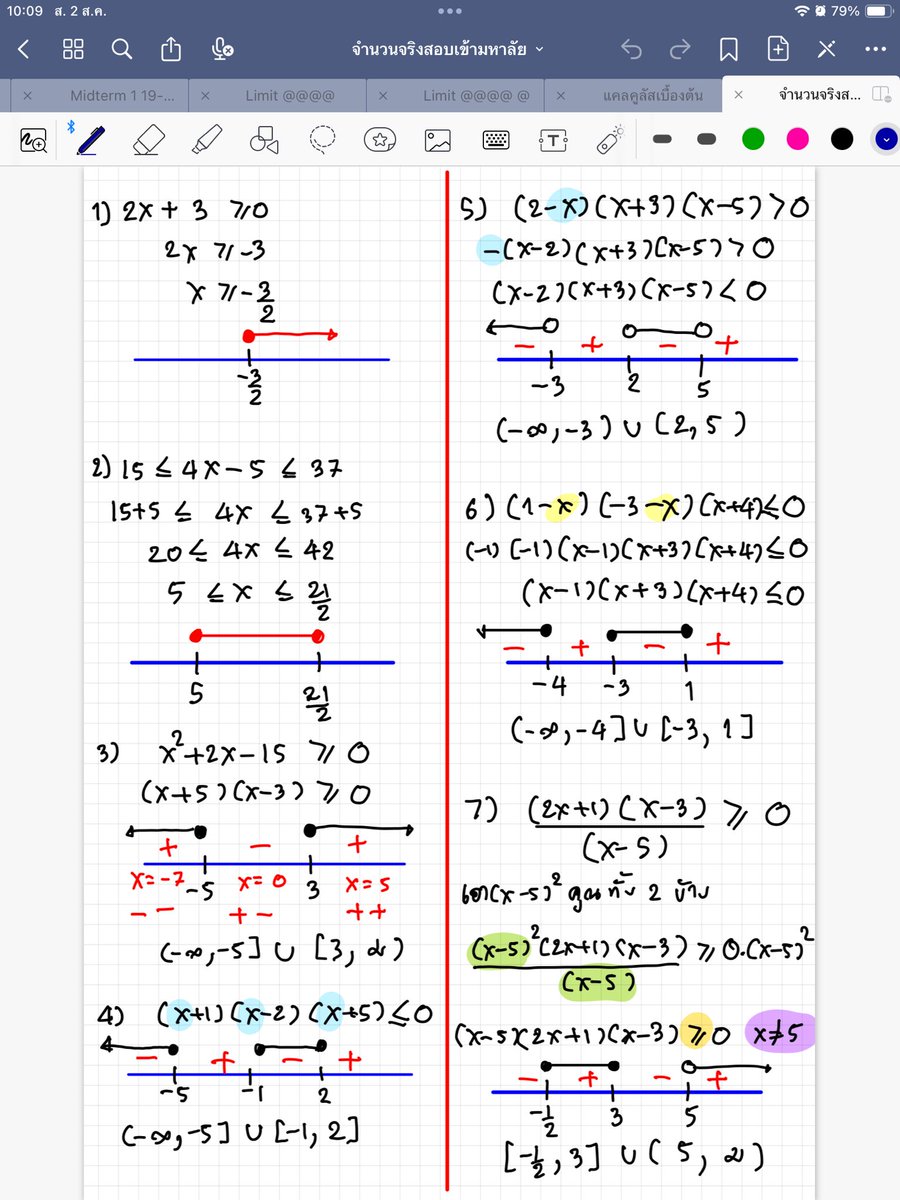 10:09 ส. 2 ส.ค.
79%
จำนวนจริงสอบเข้ามหาลัย
Midterm 1 19-...
Limit @@@@
Limit @@@@ @
แคลคูลัสเบื้องต้น
จำนวนจริงส...
1) 2x + 3 ⩾ 0
2x ⩾ -3
x ⩾ -3/2
-3/2
2) 15 ≤ 4x - 5 ≤ 37
15+5 ≤ 4x ≤ 37+5
20 ≤ 4x ≤ 42
5 ≤ x ≤ 21/2
5 21/2
3) x²+2x-15 ⩾ 0
(x+5)(x-3) ⩾ 0
+ - +
-5 3
x=-7 x=0 x=5
- - + - + +
(-∞,-5] ∪ [3, ∞)
4) (x+1)(x-2)(x+5) ≤ 0
- + - +
-5 -1 2
(-∞,-5] ∪ [-1, 2]
5) (2-x)(x+3)(x-5) > 0
-(x-2)(x+3)(x-5) > 0
(x-2)(x+3)(x-5) < 0
- + - +
-3 2 5
(-∞,-3) ∪ (2,5)
6) (1-x)(-3-x)(x+4) ≤ 0
(-1)(-1)(x-1)(x+3)(x+4) ≤ 0
(x-1)(x+3)(x+4) ≤ 0
- + - +
-4 -3 1
(-∞,-4] ∪ [-3, 1]
7) (2x+1)(x-3)/(x-5) ⩾ 0
เอา(x-5)² คูณทั้ง 2 ข้าง
(x-5)²(2x+1)(x-3)/(x-5) ⩾ 0.(x-5)²
(x-5)(2x+1)(x-3) ⩾ 0 x≠5
- + - +
-1/2 3 5
[-1/2, 3] ∪ (5, ∞)